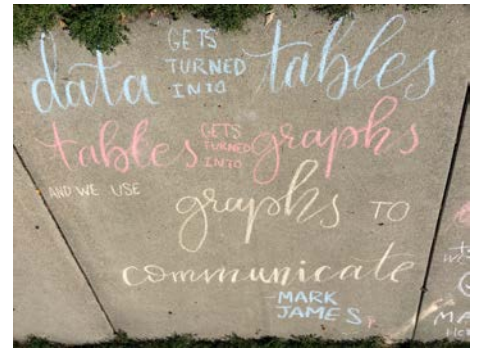 data GETS TURNED INTO tables
tables GETS TURNED INTO graphs
AND WE USE graphs TO
communicate
-MARK JAMES